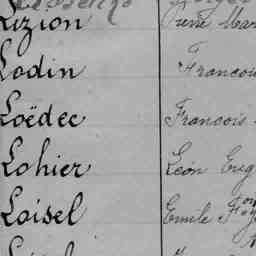 Lizion Pierre Mar
Lodin Francois
Loëdec Francois
Lohier Léon Eug
Loisel Emile